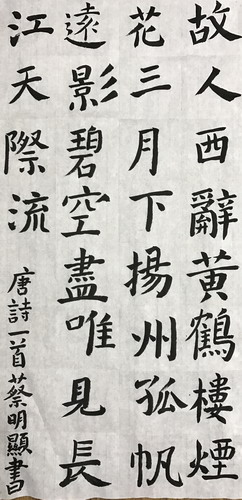 故人西辭黃鶴樓煙
花三月下揚州孤帆
遠影碧空盡唯見長
江天際流
唐詩一首蔡明顯書